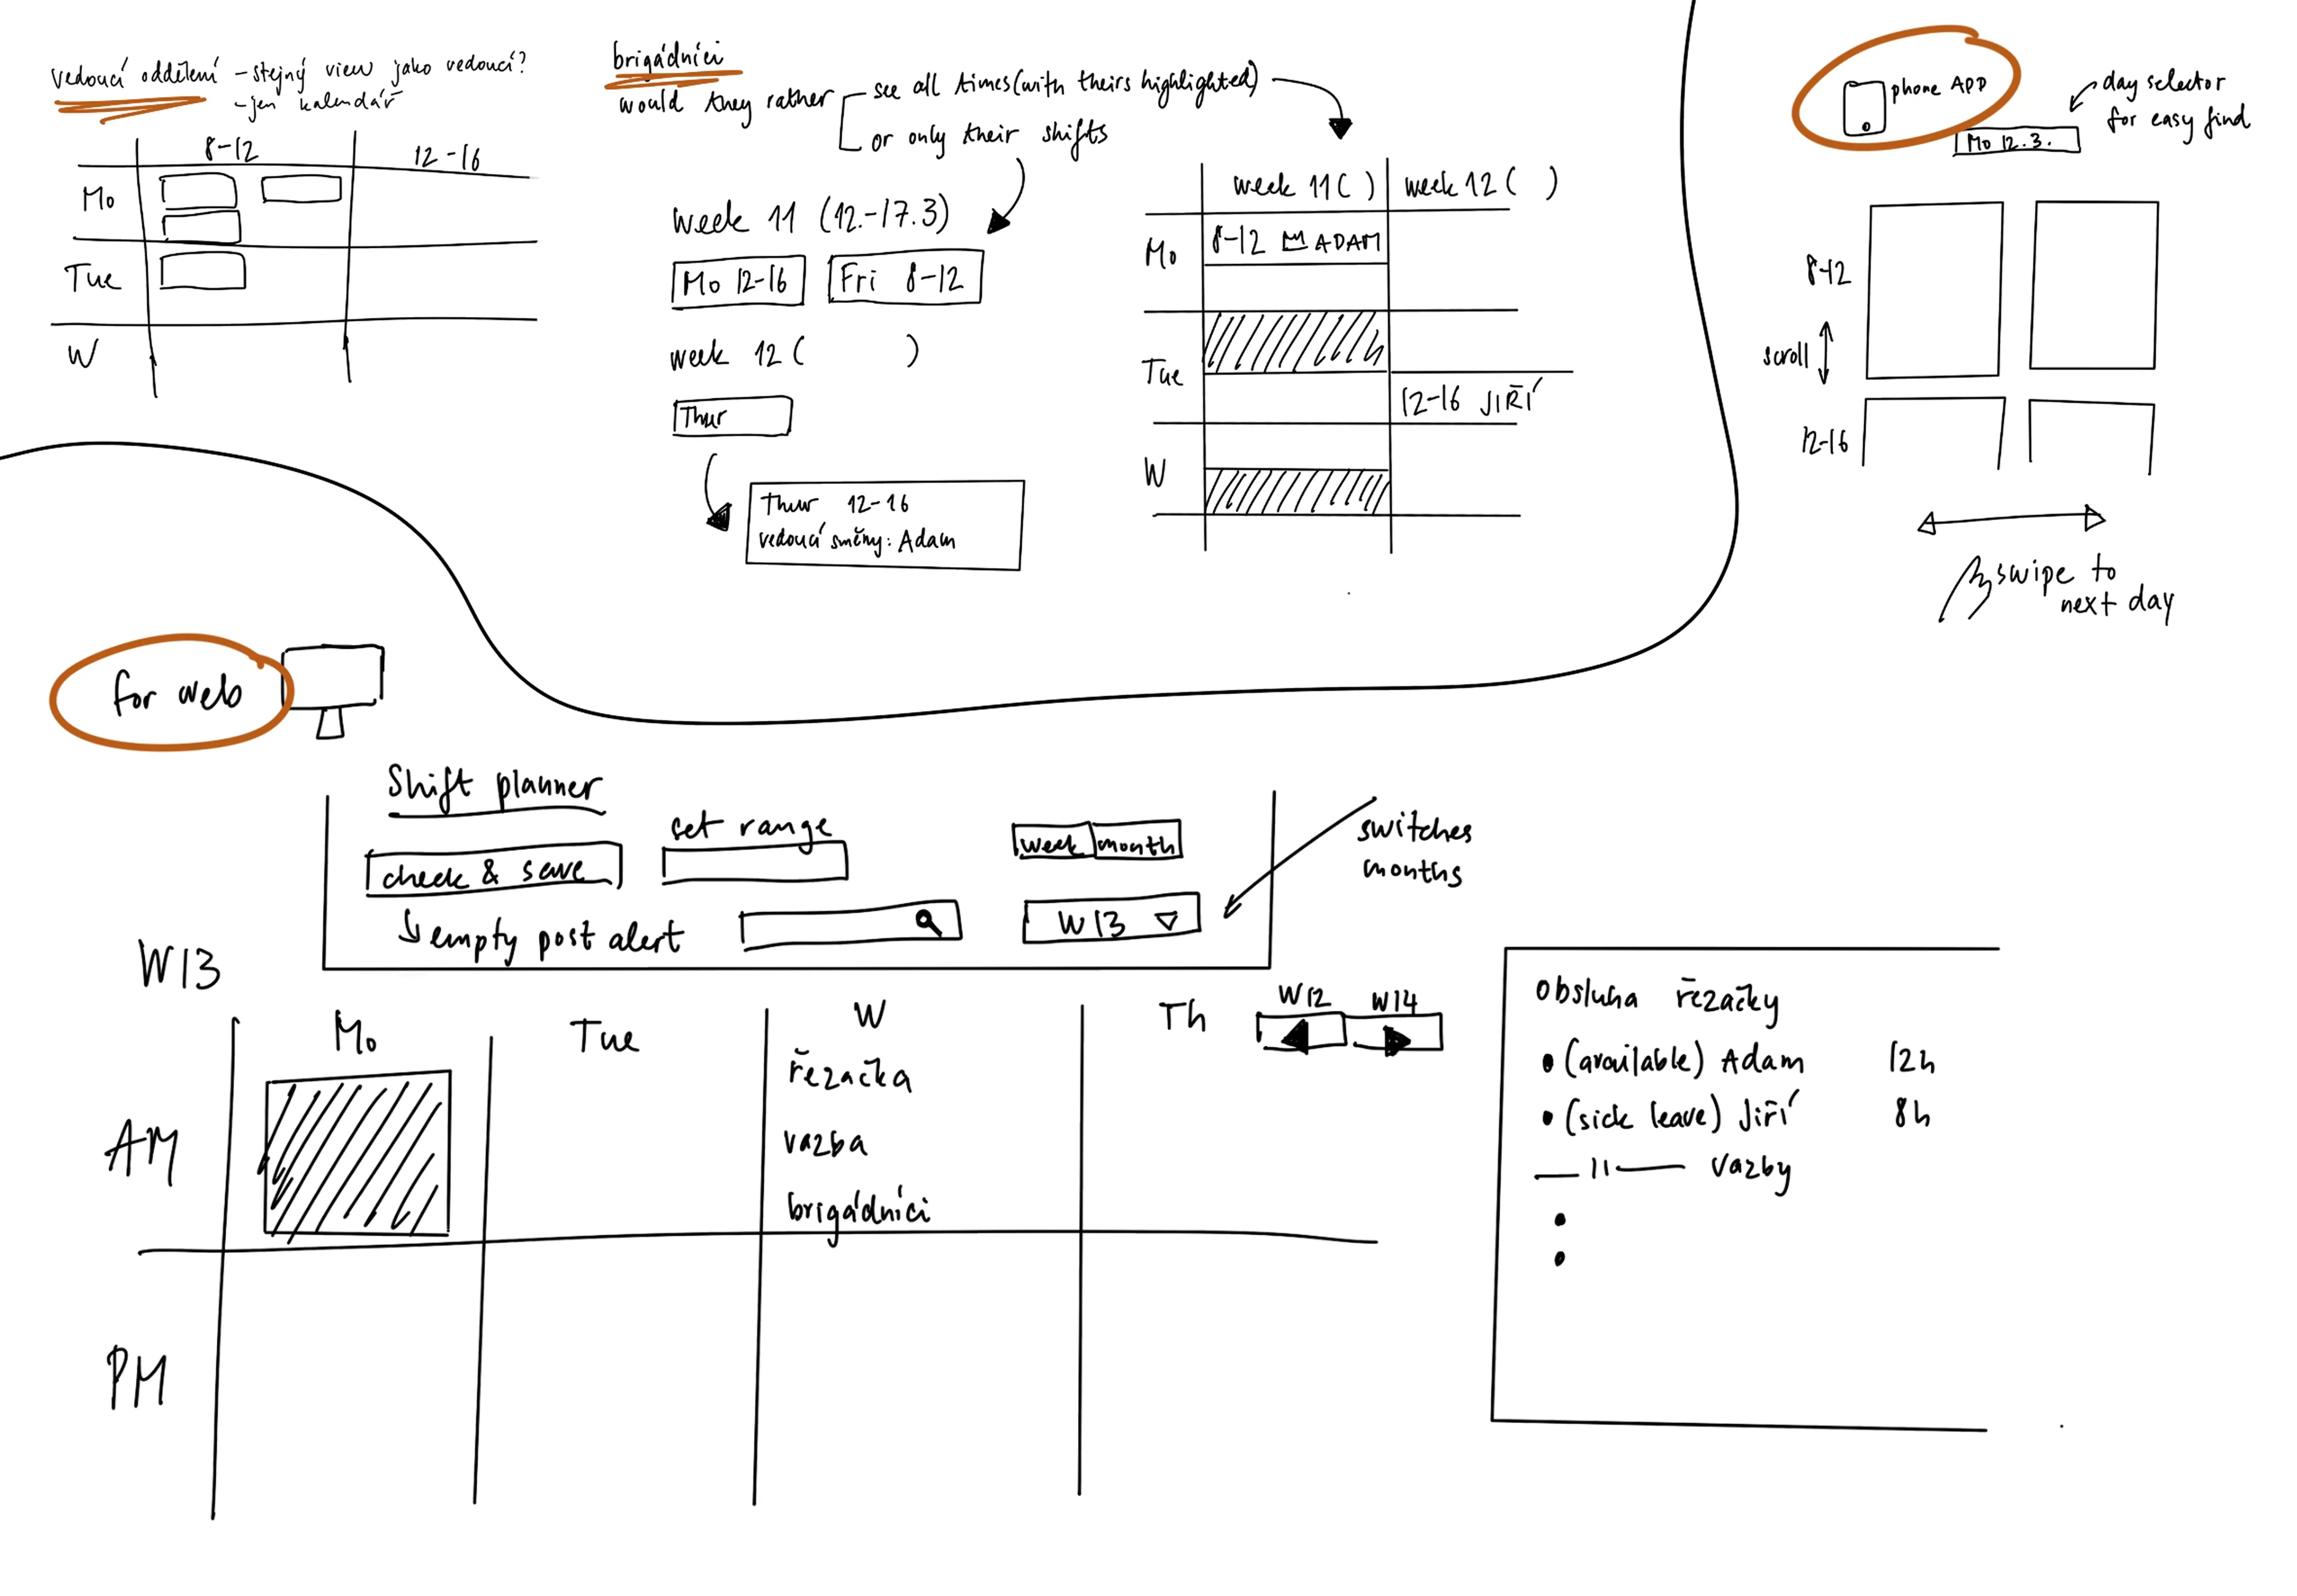 vedoucí oddělení - stejný view jako vedoucí?
- jen kalendář
8-12
12-16
Mo
Tue
W
brigádníci
would they rather
see all times (with theirs highlighted)
or only their shifts
week 11 (12.-17.3)
Mo 12-16
Fri 8-12
week 12 ( )
Thur
Thur 12-16
vedoucí směny: Adam
week 11 ( )
week 12 ( )
Mo
8-12 ADAM
Tue
12-16 JIŘÍ
W
phone APP
day selector
for easy find
Mo 12.3.
8-12
scroll
12-16
swipe to
next day
for web
Shift planner
check & save
set range
week
month
switches
months
empty post alert
W13
W13
Mo
Tue
W
Th
W12
W14
AM
řezačka
vazba
brigádníci
PM
obsluha řezačky
• (available) Adam 12h
• (sick leave) Jiří 8h
— 11 — vazby
•
•